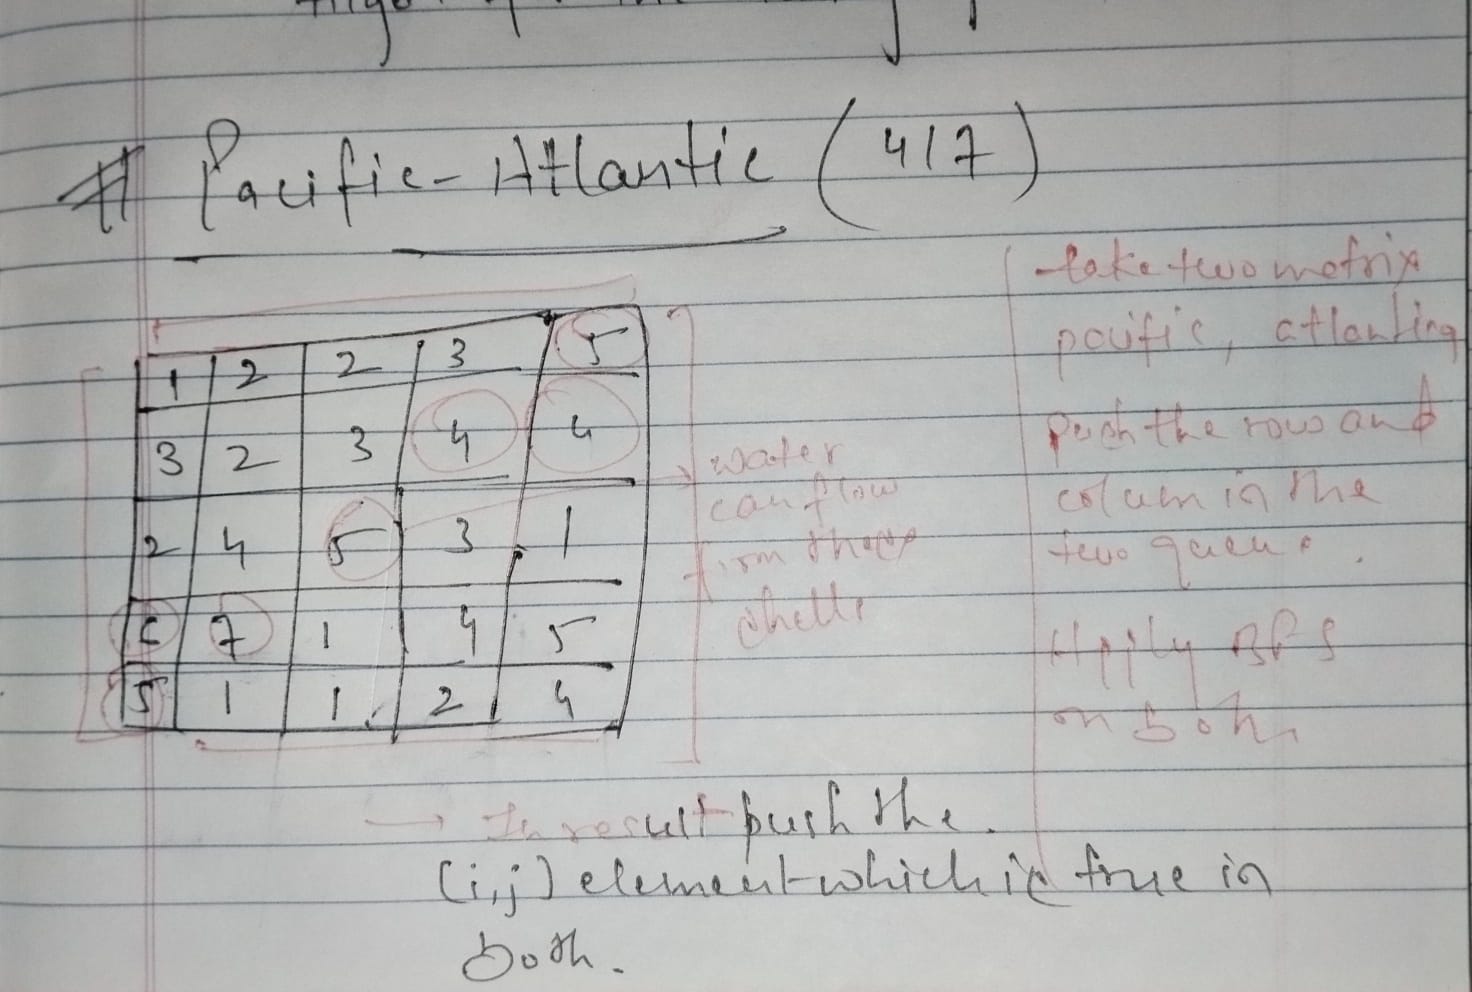 # Pacific-Atlantic (417)
1 2 2 3 5
3 2 3 4 4
2 4 5 3 1
7 1 4 5
5 1 1 2 4
water
can flow
from these
take two matrix
pacific,
push the row and
column in the
two
Apply BFS
on both
→ In result push the.
(i,j) element which is true in
both.